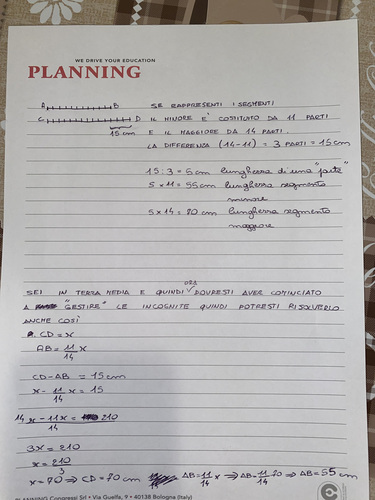 WE DRIVE YOUR EDUCATION
PLANNING
A B SE RAPPRESENTI I SEGMENTI
C D IL MINORE E' COSTITUITO DA 11 PARTI
15 cm E IL MAGGIORE DA 14 PARTI.
LA DIFFERENZA (14-11) = 3 PARTI = 15 cm
15 : 3 = 5 cm lunghezza di una "parte"
5 x 11 = 55 cm lunghezza segmento
minore
5 x 14 = 70 cm lunghezza segmento
maggiore
SEI IN TERZA MEDIA E QUINDI ORA DOVRESTI AVER COMINCIATO
A "GESTIRE" LE INCOGNITE QUINDI POTRESTI RISOLVERLO
ANCHE COSÌ
CD = x
AB = 11/14 x
CD - AB = 15 cm
x - 11/14 x = 15
14x - 11x = 210
3x = 210
x = 210/3
x = 70 ⇒ CD = 70 cm AB = 11/14 x ⇒ AB = 11/14 70 ⇒ AB = 55 cm
PLANNING Congressi Srl • Via Guelfa, 9 • 40138 Bologna (Italy)